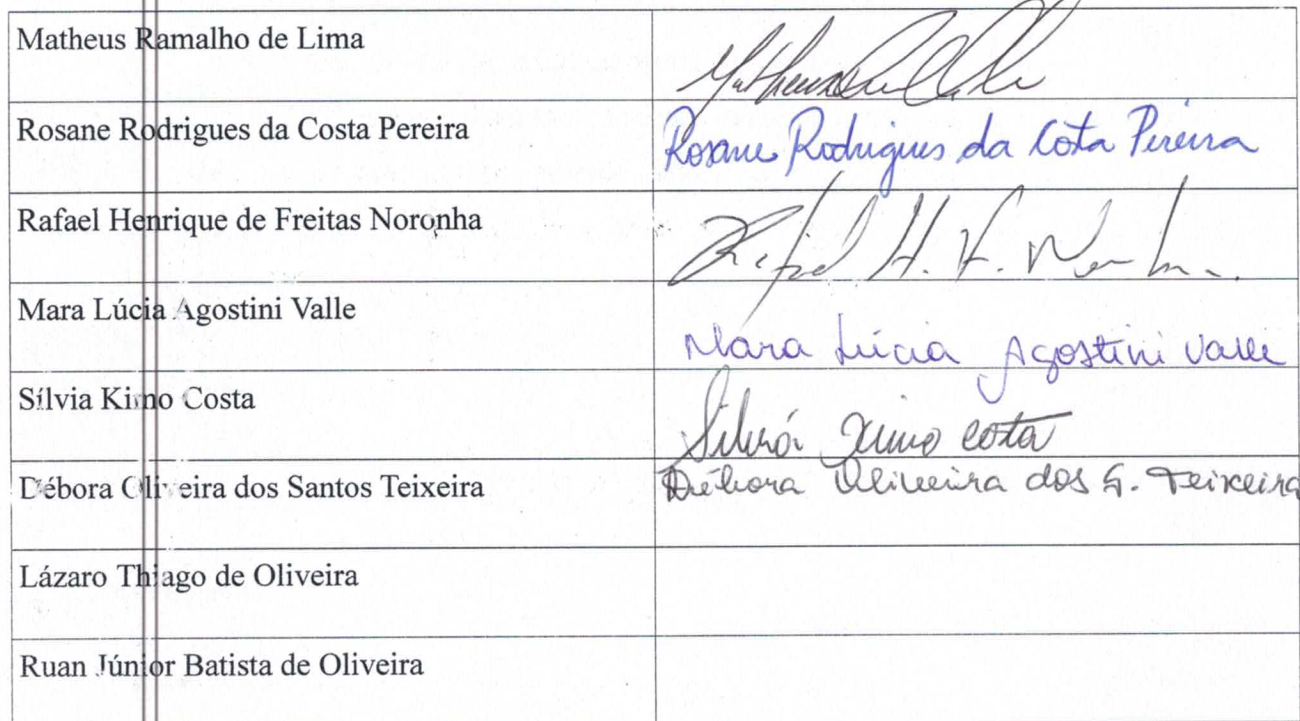 Matheus Ramalho de Lima
Rosane Rodrigues da Costa Pereira
Rosane Rodrigues da Costa Pereira
Rafael Henrique de Freitas Noronha
Rafael H. F.
Mara Lúcia Agostini Valle
Mara Lúcia Agostini Valle
Sílvia Kimo Costa
Sílvia Kimo Costa
Débora Oliveira dos Santos Teixeira
Débora Oliveira dos S. Teixeira
Lázaro Thiago de Oliveira
Ruan Júnior Batista de Oliveira